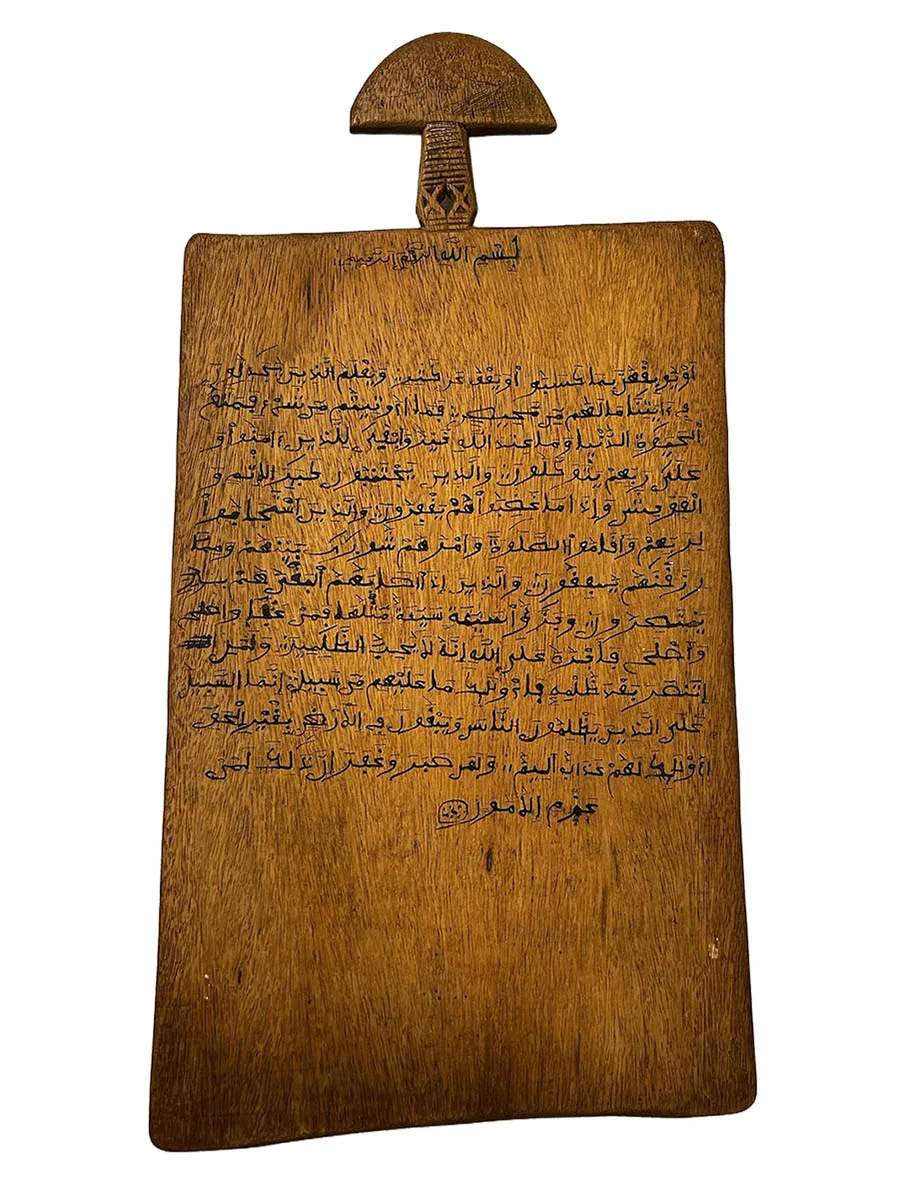 بسم الله الرحمن الرحيم
أو يوبقهن بما كسبوا ويعف عن كثير ويعلم الذين يجدلون
في ءايتنا ما لهم من محيص فما أوتيتم من شيء فمتع
الحيوة الدنيا وما عند الله خير وأبقى للذين ءامنوا و
على ربهم يتوكلون والذين يجتنبون كبير الإثم و
الفوحش وإذا ما غضبوا هم يغفرون والذين استجابوا
لربهم وأقاموا الصلوة وأمرهم شورى بينهم ومما
رزقنهم ينفقون والذين إذا أصابهم البغي هم
ينتصرون وجزؤا سيئة سيئة مثلها فمن عفا
وأصلح فأجره على الله إنه لا يحب الظلمين ولمن
انتصر بعد ظلمه فأولئك ما عليهم من سبيل إنما السبيل
على الذين يظلمون الناس ويبغون في الأرض بغير الحق
أولئك لهم عذاب أليم ولمن صبر وغفر إن ذلك لمن
عزم الأمور